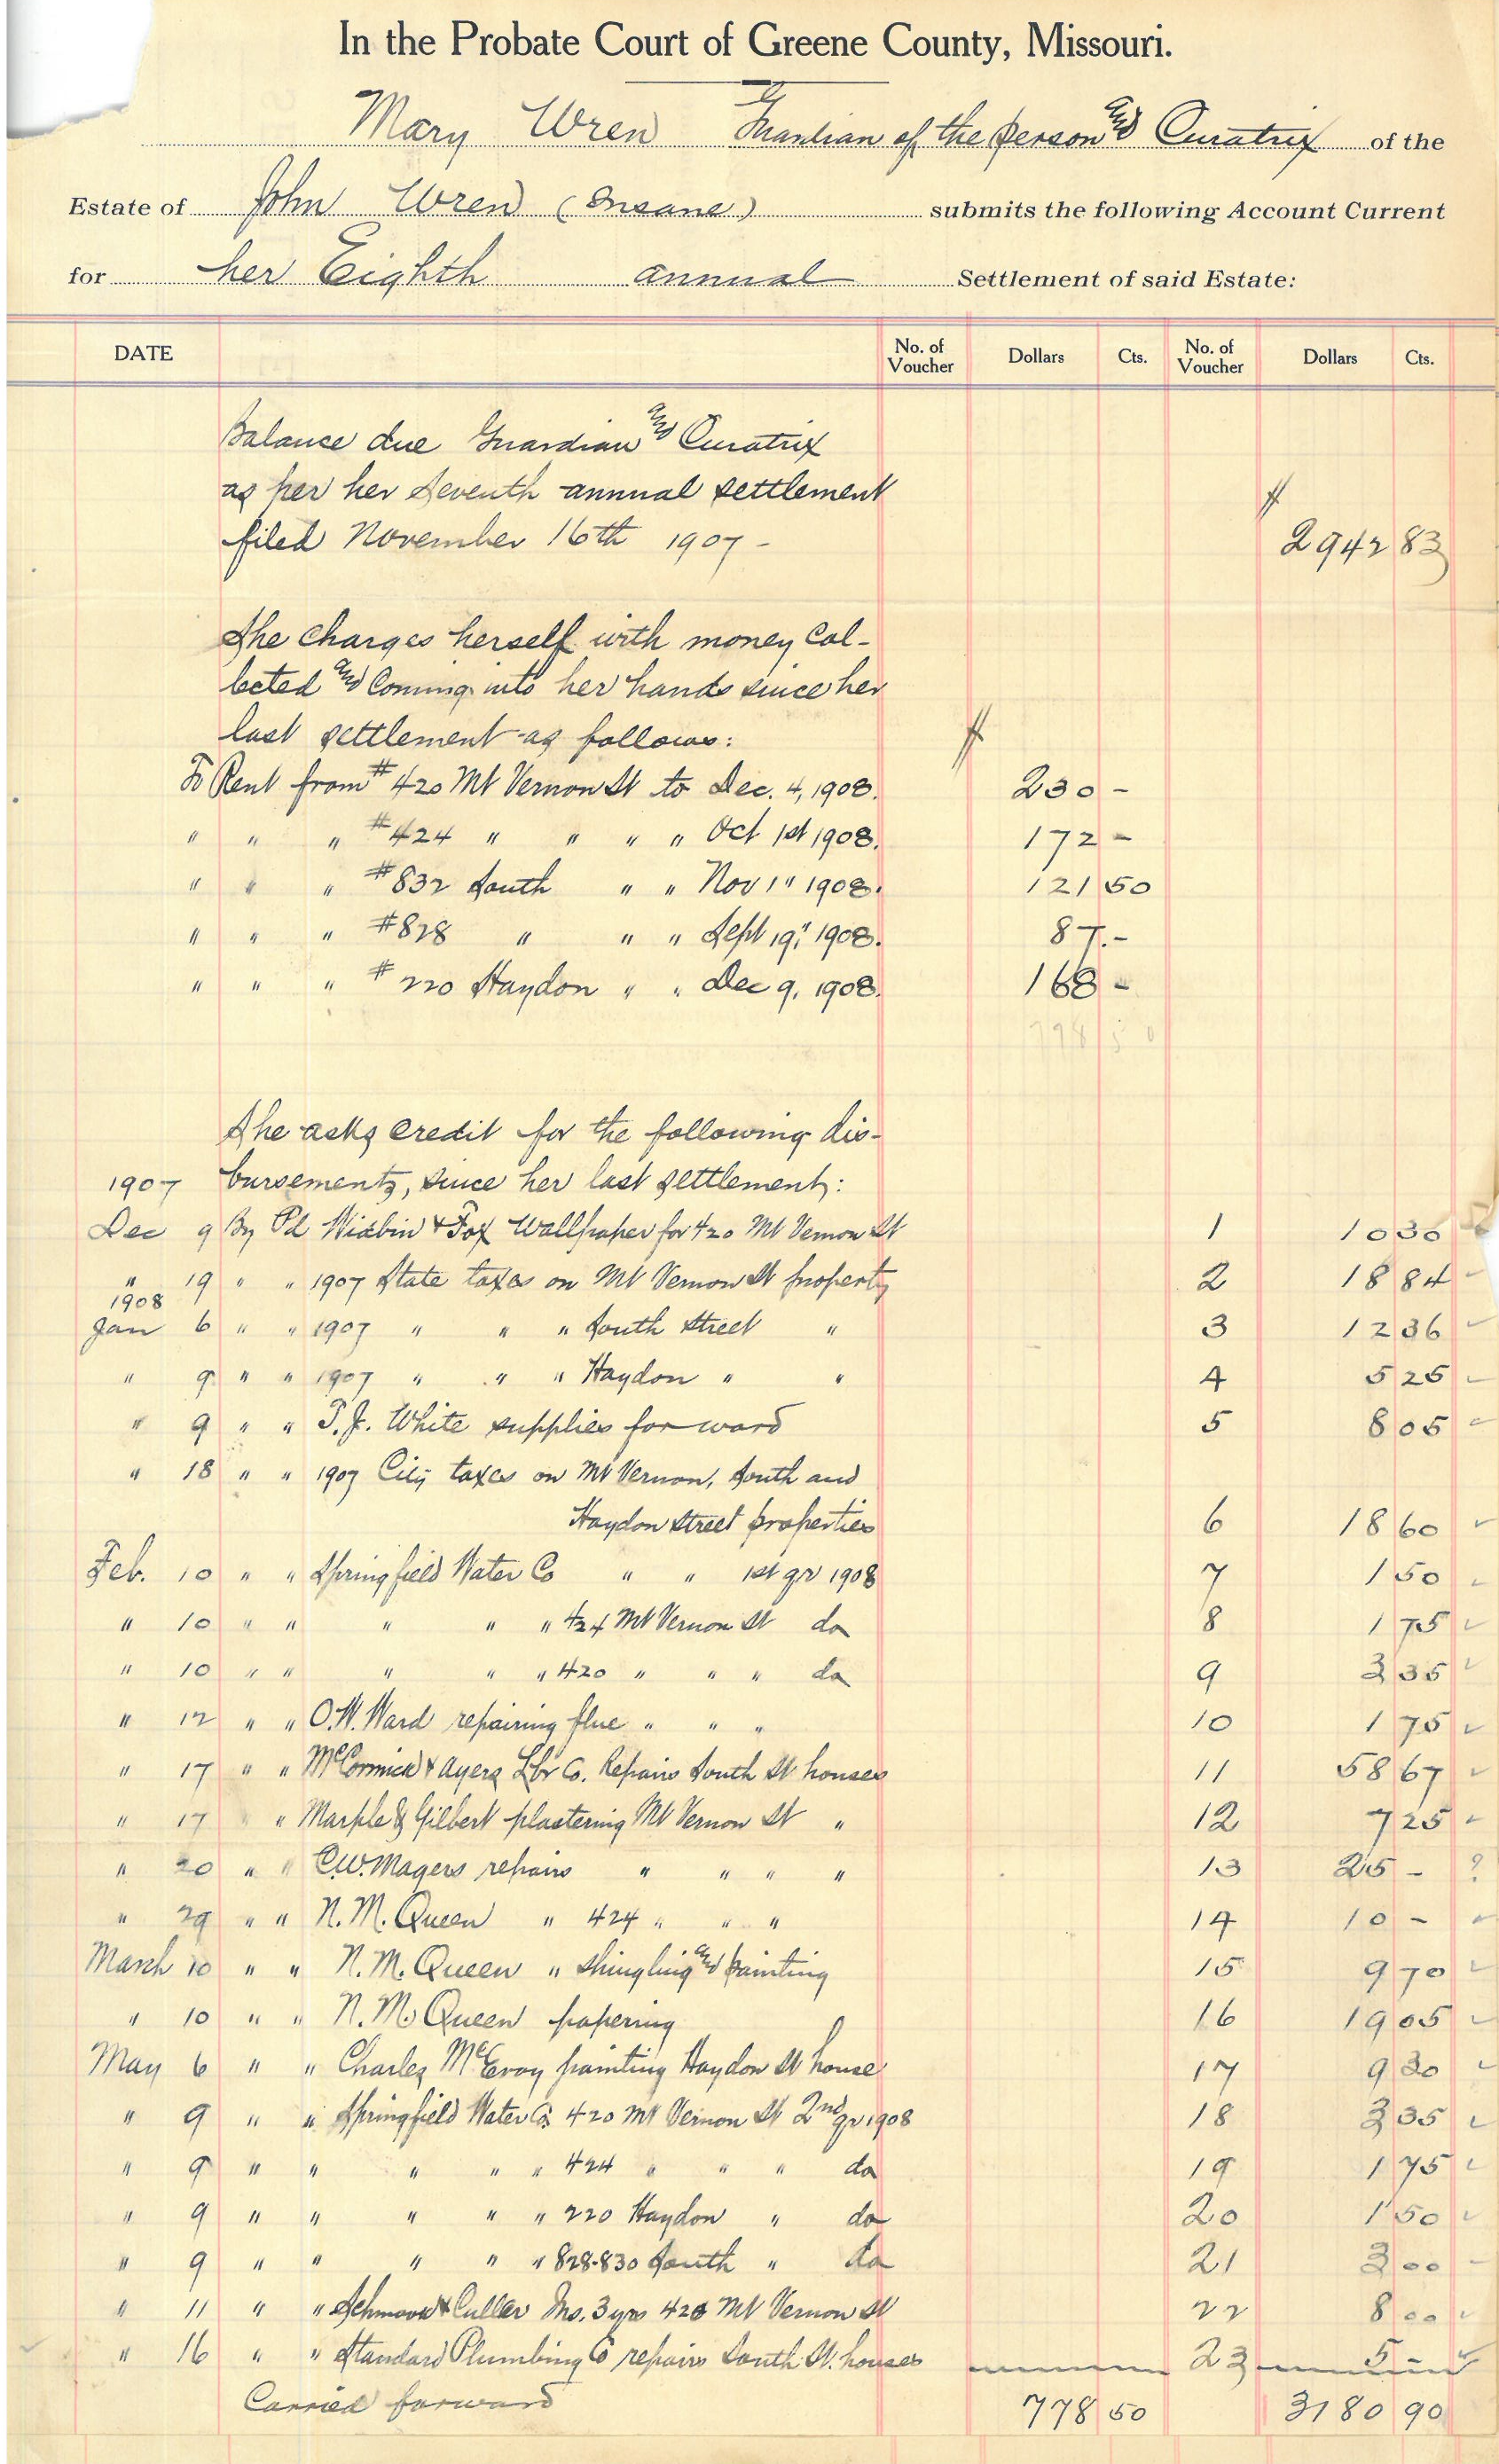 In the Probate Court of Greene County, Missouri.
Mary Wren Guardian of the person and Curatrix of the
Estate of John Wren (Insane) submits the following Account Current
for her Eighth annual Settlement of said Estate:
DATE No. of Voucher Dollars Cts. No. of Voucher Dollars Cts.
Balance due Guardian and Curatrix
as per her Seventh annual settlement $
filed November 16th 1907 - 2942 83
She charges herself with money col-
lected and coming into her hands since her
last settlement as follows: $
To Rent from #420 Mt Vernon St to Dec. 4, 1908. 230 -
" " " #424 " " " " Oct 1st 1908. 172 -
" " " #832 South " " Nov 1" 1908. 121 50
" " " #828 " " " Sept 19," 1908. 87. -
" " " #220 Haydon " " Dec 9, 1908. 168 -
798 50
She asks credit for the following dis-
1907 bursements, since her last settlement:
Dec 9 By Pd & Fox Wallpaper for 420 Mt Vernon St 1 10 30
" 19 " " 1907 State taxes on Mt Vernon St property 2 18 84
1908
Jan 6 " " 1907 " " " South Street " 3 12 36
" 9 " " 1907 " " " Haydon " " 4 5 25
" 9 " " T.J. White supplies for ward 5 8 05
" 18 " " 1907 City taxes on Mt Vernon, South and
Haydon Street properties 6 18 60
Feb. 10 " " Springfield Water Co " " 1st qr 1908 7 1 50
" 10 " " " " " 424 Mt Vernon St do 8 1 75
" 10 " " " " " 420 " " " do 9 3 35
" 12 " " O.W. Ward repairing flue " " " 10 1 75
" 17 " " McCormick & Ayers Lbr Co. Repairs South St houses 11 58 67
" 17 " " Marple & Gilbert plastering Mt Vernon St " 12 7 25
" 20 " " C.W. Magers repairs " " " " 13 25 - ?
" 29 " " N. M. Queen " 424 " " " 14 10 -
March 10 " " N. M. Queen " shingling and painting 15 9 70
" 10 " " N. M. Queen papering 16 19 05
May 6 " " Charles McEvoy painting Haydon St house 17 9 30
" 9 " " Springfield Water Co. 420 Mt Vernon St 2nd qr 1908 18 3 35
" 9 " " " " " 424 " " " do 19 1 75
" 9 " " " " " 220 Haydon " do 20 1 50
" 9 " " " " " 828-830 South " do 21 3 00
" 11 " " & Culler Ins. 3 yrs 420 Mt Vernon St 22 8 00
" 16 " " Standard Plumbing Co repairs South St. houses 23 5 -
Carried forward 778 50 3180 90